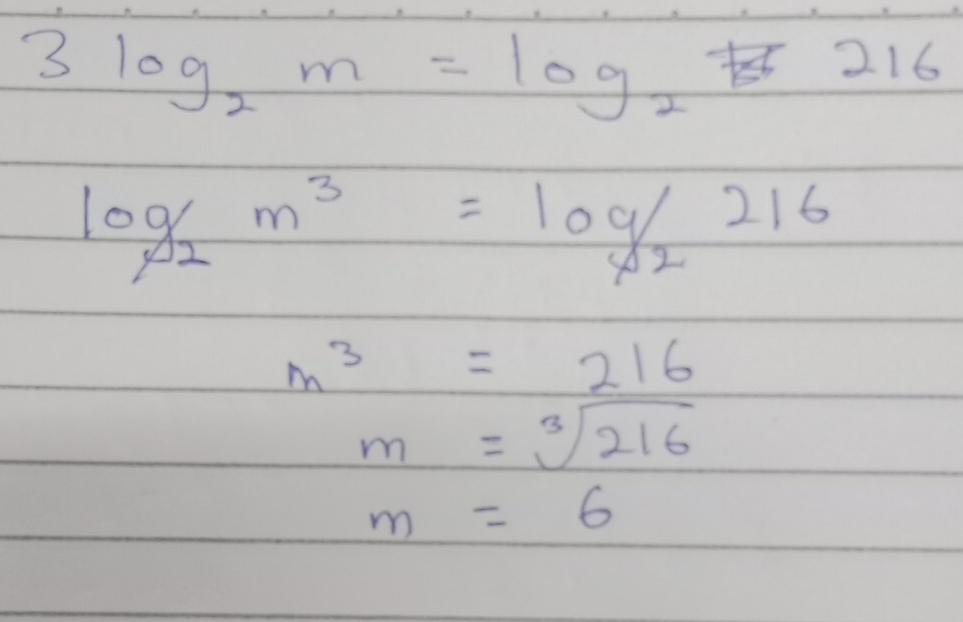 3 log₂ m = log₂ 216
log₂ m³ = log₂ 216
m³ = 216
m = ³√216
m = 6